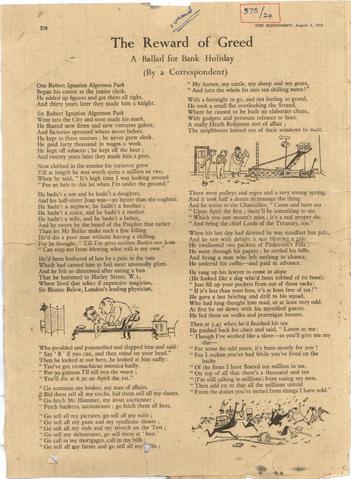 236
THE ECONOMIST, August 2, 1952
375
/24
The Reward of Greed
A Ballad for Bank Holiday
(By a Correspondent)
One Robert Ignatius Algernon Park
Began his career as the junior clerk.
He added up figures and got them all right,
And thirty years later they made him a knight.
Sir Robert Ignatius Algernon Park
Went into the City and soon made his mark.
He floated new firms and he ventures galore,
And factories sprouted where never before.
He kept to three courses; he never grew sleek.
He paid forty thousand in wages a week.
He kept off tobacco; he kept off the beer;
And twenty years later they made him a peer.
Now clothed in the ermine his turnover grew
Till at length he was worth quite a million or two,
When he said, "It's high time I was looking around
"For an heir to this lot when I'm under the ground."
He hadn't a son and he hadn't a daughter,
And his half-sister Joan was—no better than she oughter.
He hadn't a nephew, he hadn't a brother;
He hadn't a niece, and he hadn't a mother.
He hadn't a wife, and he hadn't a father,
And he swore by the beard of the Prophet that rather
Than let Mr Butler make such a fine killing
He'd die a poor man without leaving a shilling.
For he thought, "Till I'm gone neither Butler nor Joan
"Can stop me from blowing what still is my own."
He'd been bothered of late by a pain in the tum
Which had caused him to feel most unusually glum.
And he felt so distressed after eating a bun
That he hastened to Harley Street, W.1,
Where lived that select if expensive magician,
Sir Blunter Bilery, London's leading physician,
Who prodded and pommelled and slapped him and said:
"Say 'R' if you can, and then stand on your head."
Then he looked at our hero, he looked at him sadly:
"You've got stomachicus intensica badly.
"For 50 guineas I'll tell you the worst:
"You'll die at 6.30 on April the 1st."
"Go summon my broker, my man of affairs.
"Bid them sell all my stocks, bid them sell all my shares.
"Go fetch Mr Hammer, my stout auctioneer;
"Fetch bankers, accountants; go fetch them all here.
"Go sell all my pictures, go sell all my suits;
"Go sell all my guns and my syndicate shoots;
"Go sell all my reds and my stretch on the Test;
"Go sell my debentures, go sell them at 'best.'
"Go call in my mortgages, call in my bills;
"Go sell all my farms and go sell all my
"My horses, my cattle, my sheep and my goats,
"And turn the whole lot into ten shilling notes!"
With a fortnight to go, and not feeling so grand,
He took a small flat overlooking the Strand,
Where he caused to be built an elaborate chute,
With gadgets and pressure releases to boot.
A really Heath Robinson sort of affair;
The neighbours leaned out of their windows to stare.
There were pulleys and ropes and a very strong spring,
And it took half a dozen to manage the thing.
And he wrote to the Chancellor, "Come and have tea
"Upon April the first; there'll be something to see
"Which you just mustn't miss; it's a real proper do.
And bring the other Lords of the Treasury too."
When his last day had dawned he was steadfast but pale,
And he saw with delight it was blowing a gale
He swallowed two packets of Pinkerton's Pills;
He went through his papers; he settled his bills.
And being a man who left nothing to chance,
He ordered his coffin—and paid in advance.
He rang up his lawyer to come in at once
(He looked like a dog who'd been robbed of its bone).
"Just fill up your pockets from out of those sacks:
"If it's less than your fees, it's at least free of tax!"
He gave a last briefing and drill to his squad,
Who had long thought him mad, or at least very odd.
At five he sat down with his mystified guests.
He fed them on vodka and ptarmigan breasts.
Then at 5.45 when he'd finished his tea
He pushed back his chair and said, "Listen to me:
"Though I've worked like a slave—as you'll give me my
due—
"For some 60 odd years, it's been mostly for you!
"For I reckon you've had while you've lived on the
backs
"Of the firms I have floated ten million in tax.
"On top of all that there's a thousand and ten
"I'm still taking in millions from taxing my men.
"Then add on to that all the millions untold
"From the duties you've netted from things I have sold."